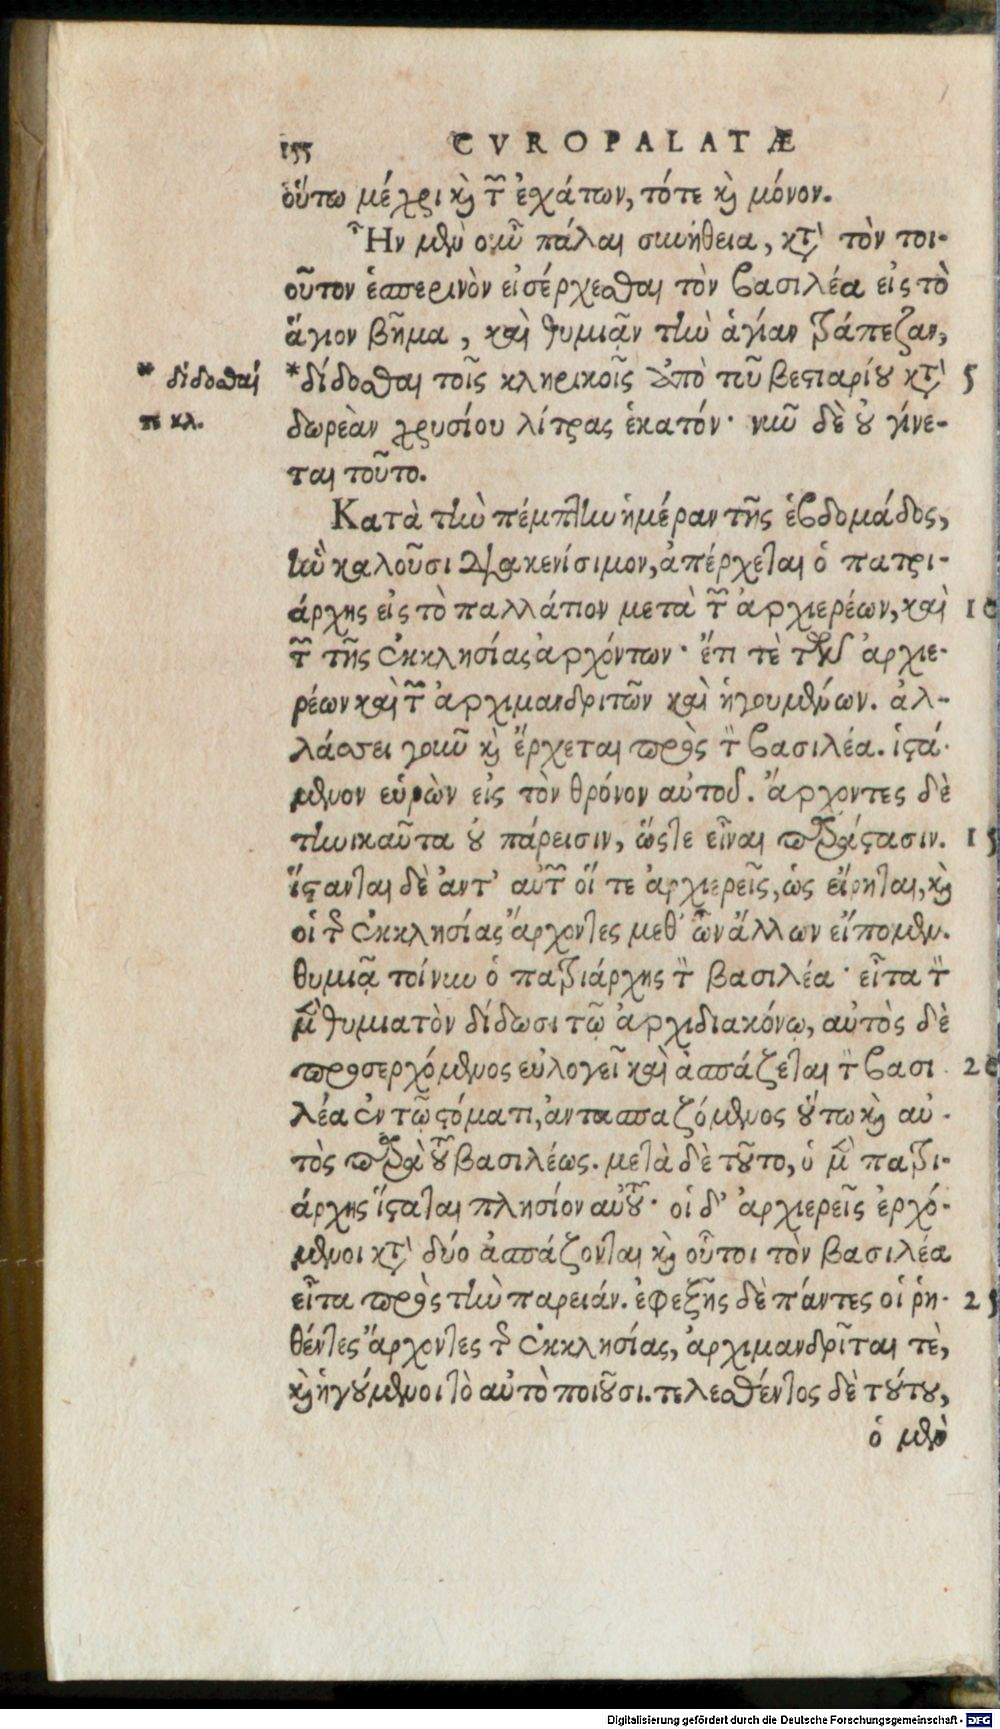 155 CVROPALATÆ
οὕτω μέχρι καὶ τῶν ἐσχάτων, τότε καὶ μόνον.
Ἦν μὲν οὖν πάλαι συνήθεια, κατὰ τὸν τοι-
οῦτον ἑσπερινὸν εἰσέρχεσθαι τὸν βασιλέα εἰς τὸ
ἅγιον βῆμα, καὶ θυμιᾷν τὴν ἁγίαν τράπεζαν,
* δίδοσθαί *δίδοσθαι τοῖς κληρικοῖς ἀπὸ τοῦ βεστιαρίου κατὰ 5
τε κλ. δωρεὰν χρυσίου λίτρας ἑκατόν· νῦν δὲ οὐ γίνε-
ται τοῦτο.
Κατὰ τὴν πέμπτην ἡμέραν τῆς ἑβδομάδος,
ἣν καλοῦσι Διακενίσιμον, ἀπέρχεται ὁ πατρι-
άρχης εἰς τὸ παλλάτιον μετὰ τῶν ἀρχιερέων, καὶ 10
τῶν τῆς ἐκκλησίας ἀρχόντων· ἔτι τὲ τῶν ἀρχιε-
ρέων καὶ τῶν ἀρχιμανδριτῶν καὶ ἡγουμένων. ἀλ-
λάσσει γοῦν καὶ ἔρχεται πρὸς τὸν βασιλέα. ἱστά-
μενον εὑρὼν εἰς τὸν θρόνον αὐτοῦ. ἄρχοντες δὲ
τηνικαῦτα οὐ πάρεισιν, ὥστε εἶναι παράστασιν. 15
ἵστανται δὲ ἀντ' αὐτῶν οἵ τε ἀρχιερεῖς, ὡς εἴρηται, καὶ
οἱ τῆς ἐκκλησίας ἄρχοντες μεθ' ὧν ἄλλων εἴπομεν.
θυμιᾷ τοίνυν ὁ πατριάρχης τὸν βασιλέα· εἶτα τὸν
μὲν θυμιατὸν δίδωσι τῷ ἀρχιδιακόνῳ, αὐτὸς δὲ
προσερχόμενος εὐλογεῖ καὶ ἀσπάζεται τὸν βασι 20
λέα ἐν τῷ στόματι, ἀντασπαζόμενος οὕτω καὶ αὐ-
τὸς παρὰ τοῦ βασιλέως. μετὰ δὲ τοῦτο, ὁ μὲν πατρι-
άρχης ἵσταται πλησίον αὐτοῦ· οἱ δ' ἀρχιερεῖς ἐρχό-
μενοι κατὰ δύο ἀσπάζονται καὶ οὗτοι τὸν βασιλέα
εἶτα πρὸς τὴν παρειάν. ἐφεξῆς δὲ πάντες οἱ ῥη- 25
θέντες ἄρχοντες τῆς ἐκκλησίας, ἀρχιμανδρῖται τὲ,
καὶ ἡγούμενοι τὸ αὐτὸ ποιοῦσι. τελεσθέντος δὲ τούτου,
ὁ μὲν
Digitalisierung gefördert durch die Deutsche Forschungsgemeinschaft - DFG